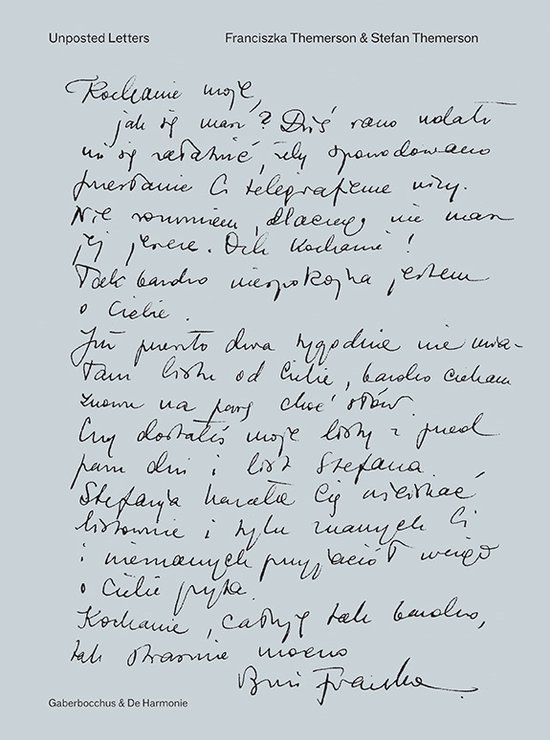 Unposted Letters Franciszka Themerson & Stefan Themerson
Kochanie moje,
jak się masz? Dziś rano udało
mi się załatwić, żeby spowodowano
przesłanie Ci telegraficznie wizy.
Nie rozumiem, dlaczego nie masz
jej jeszcze. Och kochanie!
Tak bardzo niespokojna jestem
o Ciebie.
Już przeszło dwa tygodnie nie mia-
łam listu od Ciebie, bardzo czekam
znowu na parę choć słów.
Czy dostałeś moje listy z przed
paru dni i list Stefana
Stefanja kazała Cię uściskać
listownie i tylu znanych Ci
i nieznanych przyjaciół wciąż
o Ciebie pyta.
Kochanie, całuję tak bardzo,
tak strasznie mocno
Franka
Gaberbocchus & De Harmonie